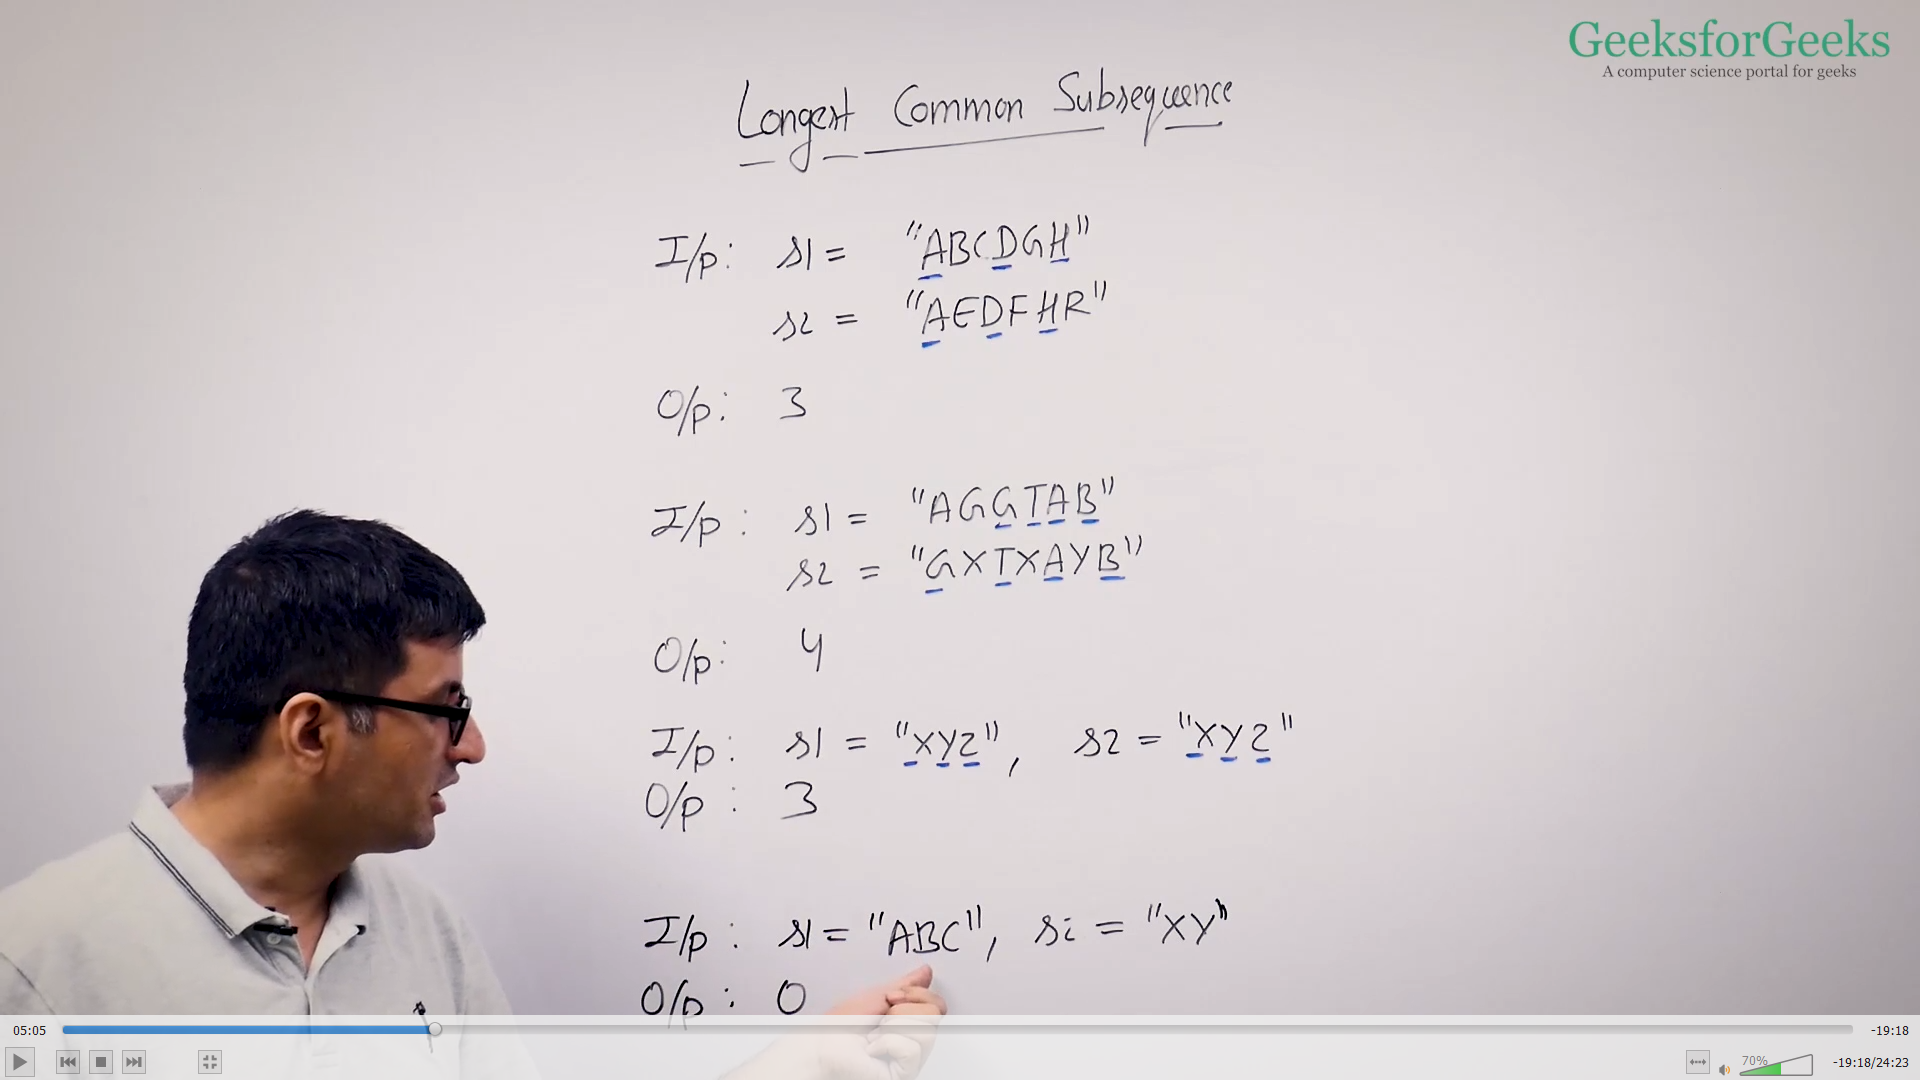 GeeksforGeeks
A computer science portal for geeks
Longest Common Subsequence
I/p: s1 = "ABCDGH"
s2 = "AEDFHR"
O/p: 3
I/p: s1 = "AGGTAB"
s2 = "GXTXAYB"
O/p: 4
I/p: s1 = "XYZ", s2 = "XYZ"
O/p: 3
I/p: s1 = "ABC", s2 = "XY"
O/p: 0
05:05
-19:18
70%
-19:18/24:23